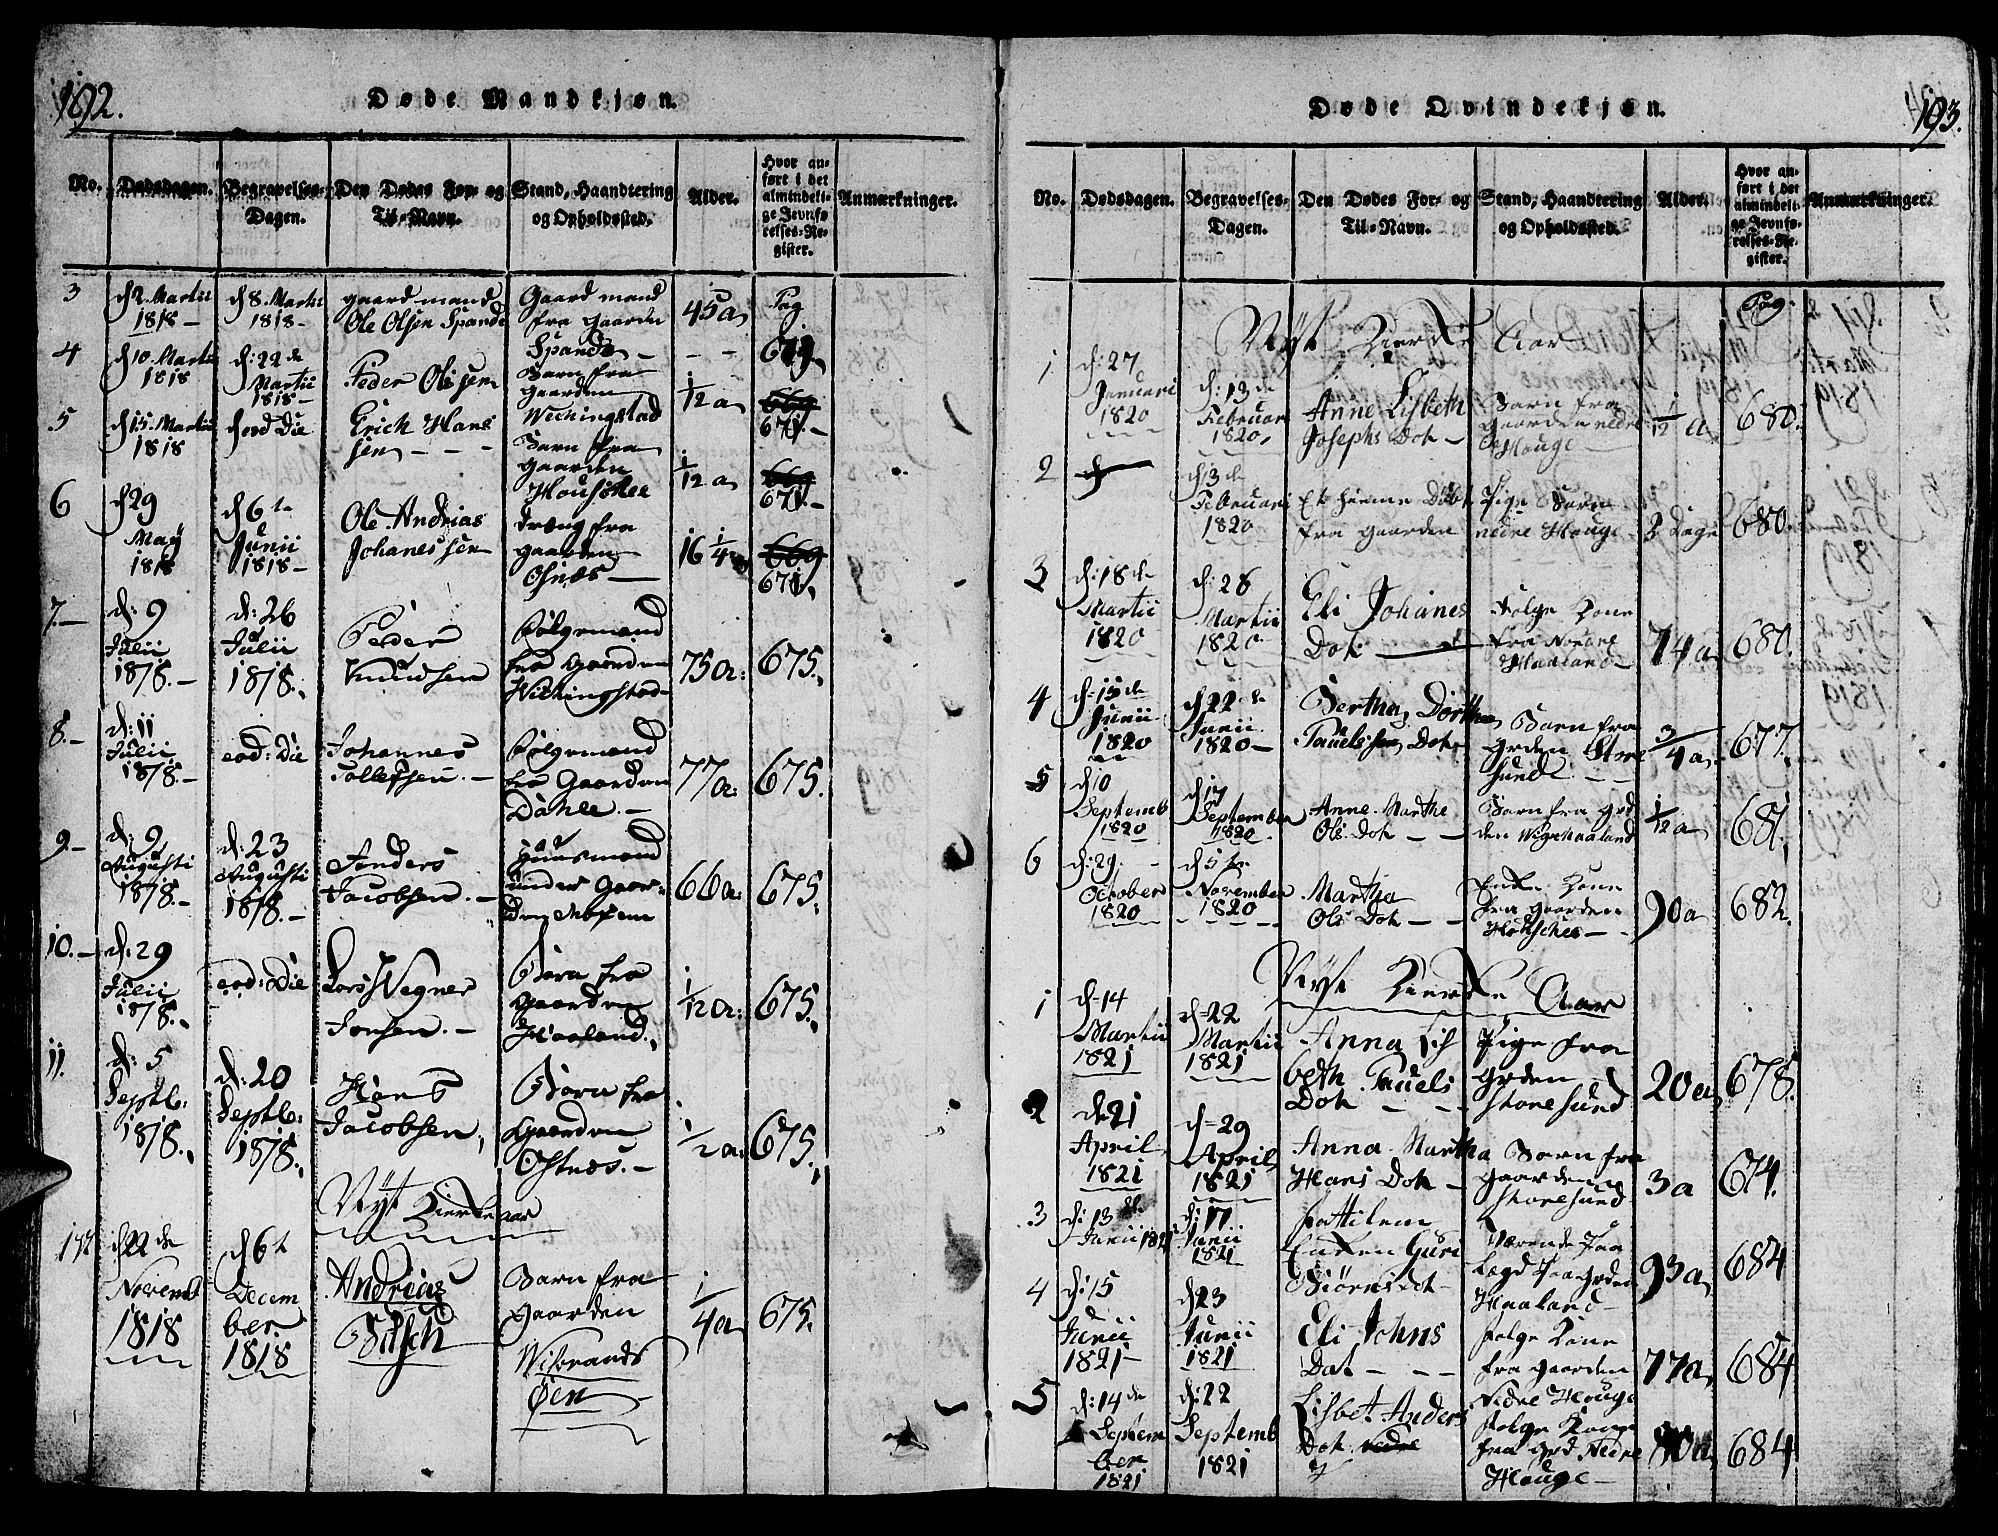 192.
Døde Mandkjøn.
No.
Dødsdagen.
Begravelses-
Dagen.
Den Dødes For- og
Til-Navn.
Stand, Haandtering
og Opholdssted.
Alder.
Hvor an-
ført i det
almindeli-
ge Jevnfø-
relses-Re-
gister.
Anmærkninger.
3
d 2. Martii
1818 -
d 8. Martii
1818 -
gaard mand
Ole Olsen Spande
Gaard mand
fra gaarden
Spande -
45 a
Pag
671.
4
d 10. Martii
1818
d: 22 de
Martii
1818 -
Peder Olsen
Barn fra
gaarden
Wichingstad
1/12 a
669
671. -
5
d 15. Martii
1818
d eod Die
Erich Hans
sen - - -
Barn fra
gaarden
Houschee
1/12 a
669
671. -
6
d 29
May
1818
d 6 te
Junii
1818 -
Ole Andrias
Johanessen
dræng fra
gaarden
Osnæs -
16 1/4
669
671.
7. -
d: 9
Julii
1818. -
d: 26
Julii
1818.
Peder
Knudsen
Følgemand
fra Gaarden
Wichingstad -
75 a:
675.
8. -
d: 11
Julii
1818. -
eod: Die
Johannes
Tollefsen. -
Følgemand
fra Gaarden
Dahle. -
77 a:
675.
9. -
d: 9
Augusti
1818. -
d: 23
Augusti
1818. -
Anders
Jacobsen. -
Huusmand
under Gaar-
den
66 a:
675.
10. -
d: 29
Julii
1818.
eod: Die
Lars Wegner
Jonsen. -
Barn fra
Gaarden
Haaland.
1/12 a:
675.
11.
d: 5
Septb:
1818.
d: 20
Septb:
1818.
Hans
Jacobsen,
Barn fra
Gaarden
Østnes. -
1/2 a:
675.
Nyt Kierke aar
d 22 de
Novemb
1818
d 6 t
Decem
ber.
1818
Andrias
Barn fra
gaarden
Wibrands
Øen
1/4 a
675.
193.
Døde Qvindekjøn.
No.
Dødsdagen.
Begravelses-
Dagen.
Den Dødes For- og
Til-Navn.
Stand, Haandtering
og Opholdssted.
Alder.
Hvor an-
ført i det
almindeli-
ge Jevnfø-
relses-Re-
gister.
Anmærkninger.
Pag.
Nyt Kierke Aar
1
d: 27
Januari
1820
d: 13 de
Februari
1820,
Anne Lisbeth
Josephs Dot -
Barn fra
gaarden nedre
Houge -
1/12 a
680.
2
d 13 de
Februari
1820
Et hieme Døbt
fra gaarden
Pige Barn
nedre Houge -
3 Dage
680.
3
d: 18 de
Martii
1820
d: 26
Martii
1820
Eli Johanes
Dot -
Følge Kone
fra Nedre
Haaland -
74 a
680.
4
d = 15 de
Junii
1820
d 22 de
Junii
1820 -
Bertha Dorthe
Pauels Dot
Barn fra
grden Store
sund - -
3/4 a
677.
5
d 10
Septemb
1820
d 17
September
1820
Anne Marthe
Ols Dot - -
Barn fra gr
den
1/12 a
681.
6
d: 29
October
1820
d 5 te
November
1820
Martha
Ols Dot - -
Enke Kone
fra gaarden
Houschee -
90 a
682.
Nyt Kierke Aar
1
d = 14
Martii
1821
d = 22
Martii
1821
Anna Lis
beth Pauels
Dot - -
Pige fra
grden
Storesund
20 a
678.
2
d 21
April
1821
d = 29
April
1821
Anna Martha
Hans Dot -
Barn fra
gaarden
Storesund
3 a
674.
3
d: 13 de
Junii 1821
d: 17
Junii
1821
Fattilem
Enken Guri
Biørns dot -
Værende Paa
Legd Paa Grden
Haaland -
93 a
684
4
d: 15
Junii
1821 -
d 23
Junii
1821
Eli Johns
Dat - - -
Følge Kone
fra gaarden
Nedre Houge
77 a
684
5
d: 14 de
Septem
ber
1821
d: 22
Septemb
1821
Lisbet Anders
Dot nedre
Følge Kone
fra grd Nedre
Houge -
684